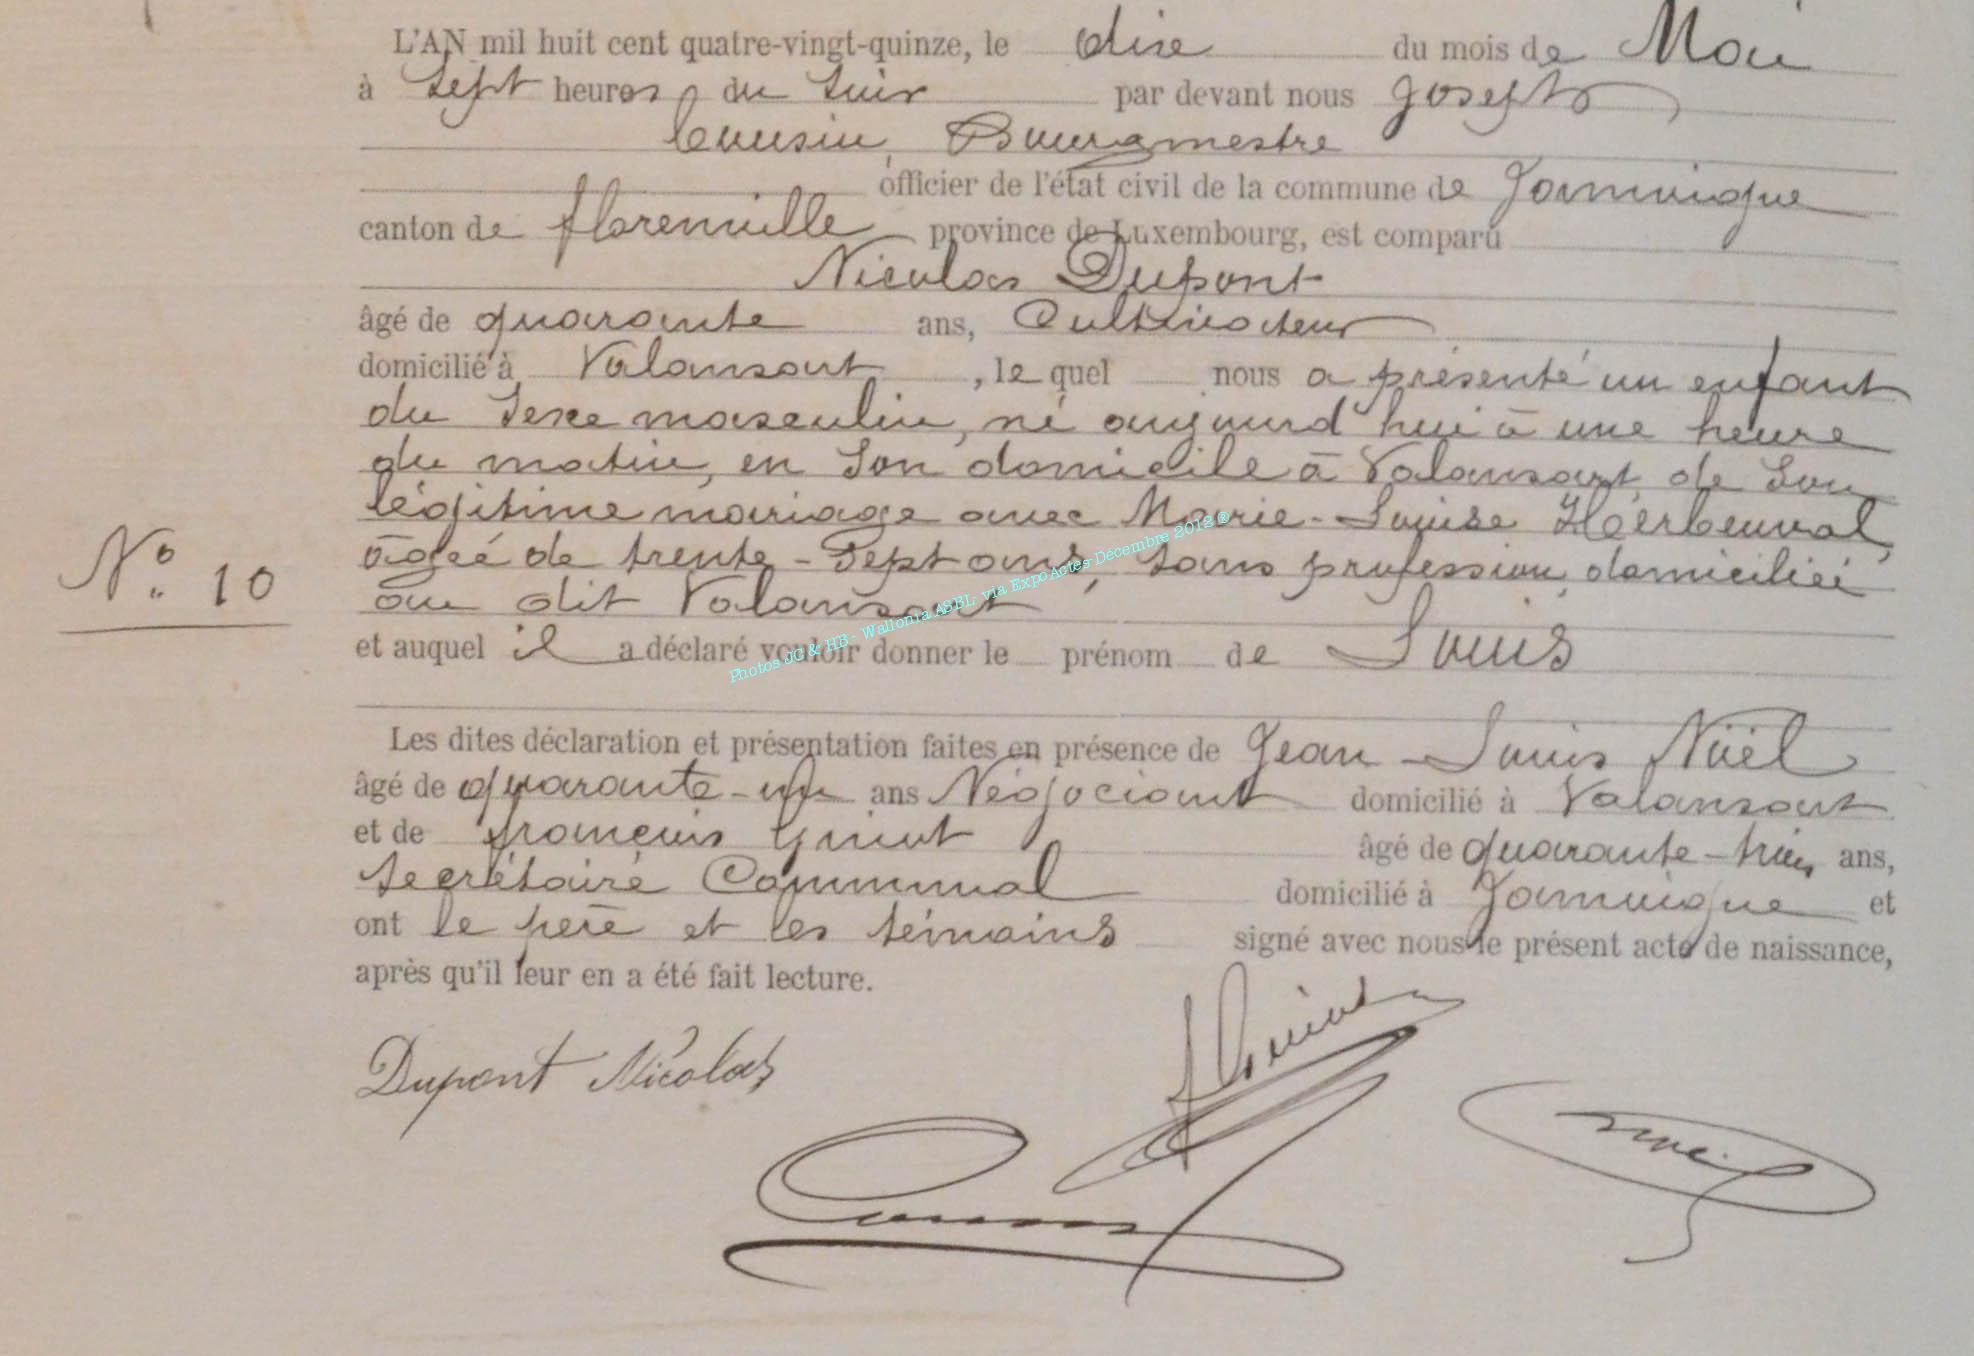 L'AN mil huit cent quatre-vingt-quinze, le dixe du mois de Mai
à Sept heures du Soir par devant nous Joseph
Cousin, Bourgmestre
officier de l'état civil de la commune de Jamoigne
canton de florenville province de Luxembourg, est comparu
Nicolas Dupont
âgé de quarante ans, Cultivateur
domicilié à Valansart, le quel nous a présenté un enfant
du Sexe masculin, né aujourd'hui à une heure
du matin, en Son domicile à Valansart, de Son
légitime mariage avec Marie-Louise Herbeuval,
âgeé de trente-Sept ans, Sans profession, domiciliéé
au dit Valansart
N° 10
et auquel il a déclaré vouloir donner le prénom de Louis
Les dites déclaration et présentation faites en présence de Jean Louis Noël
âgé de quarante-un ans Négociant domicilié à Valansart
et de françois âgé de quarante-trois ans,
Secrétaire Communal domicilié à Jamoigne et
ont le père et les témoins signé avec nous le présent acte de naissance,
après qu'il leur en a été fait lecture.
Dupont Nicolas
Photos JC & HB - Wallonia ASBL, via ExpoActes-Décembre 2012 ®